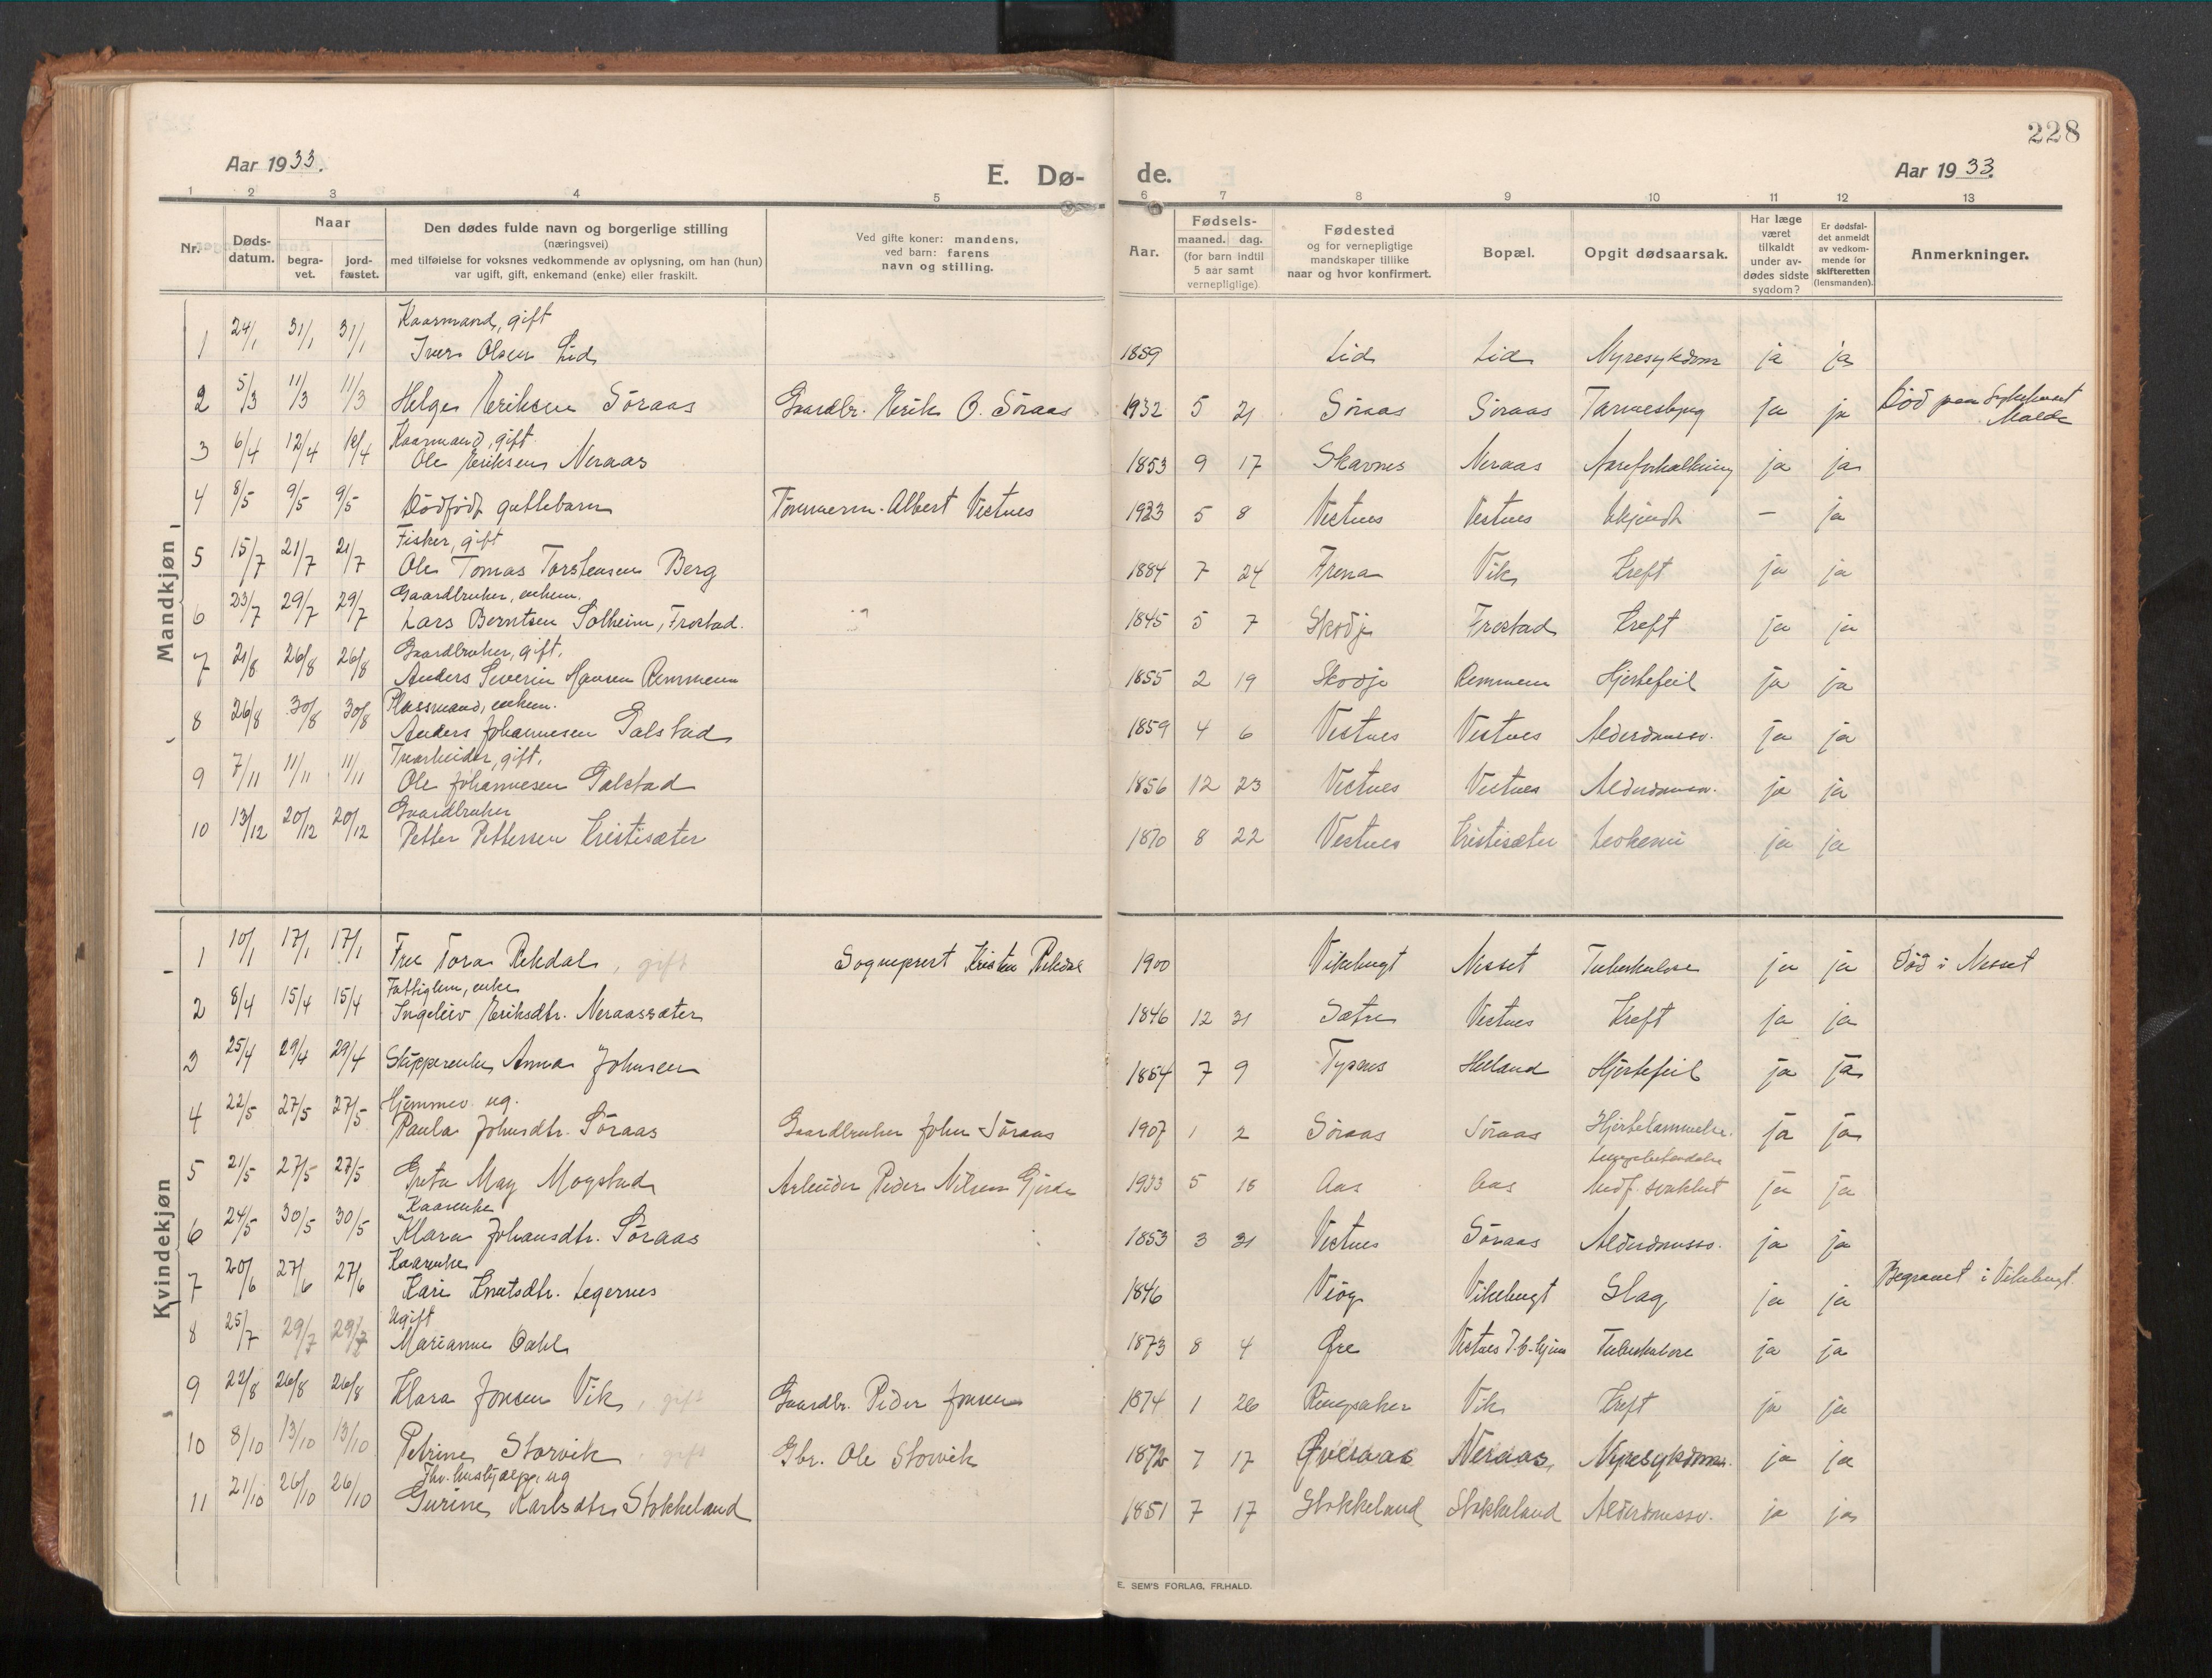 228
Aar 1933.
E. Dø-
de.
Aar 1933.
1 2 3 4 5 6 7 8 9 10 11 12 13
Nr.
Døds-
datum.
Naar
begra-
vet.
jord-
fæstet.
Den dødes fulde navn og borgerlige stilling
(næringsvei)
med tilføielse for voksnes vedkommende av oplysning, om han (hun)
var ugift, gift, enkemand (enke) eller fraskilt.
Ved gifte koner: mandens,
ved barn: farens
navn og stilling.
Aar.
Fødsels-
maaned. dag.
(for barn indtil
5 aar samt
vernepligtige)
Fødested
og for vernepligtige
mandskaper tillike
naar og hvor konfirmert.
Bopæl.
Opgit dødsaarsak.
Har læge
været
tilkaldt
under av-
dødes sidste
sygdom?
Er dødsfal-
det anmeldt
av vedkom-
mende for
skifteretten
(lensmanden).
Anmerkninger.
Mandkjøn
Kaarmand, gift
1 24/1 31/1 31/1 Iver Olsen Lid 1859 Lid Lid Nyresykdom ja ja
2 5/3 11/3 11/3 Helge Eriksen Søraas Gaardbr. Erik O. Søraas 1932 5 21 Søraas Søraas Tarmesbyg ja ja Død paa Sykehuset
Molde
Kaarmand, gift
3 6/4 12/4 12/4 Ole Eriksen Neraas 1853 9 17 Skavnes Neraas Aareforkalkning ja ja
4 8/5 9/5 9/5 Dødfødt guttebarn Tømmerm. Albert Vestnes 1933 5 8 Vestnes Vestnes Ukjendt — ja
Fisker, gift
5 15/7 21/7 21/7 Ole Tomas Torstensen Berg 1884 7 24 Fræna Vik Kreft ja ja
Gaardbruker, enkem.
6 23/7 29/7 29/7 Lars Berntsen Solheim, Frostad. 1845 5 7 Skodje Frostad Kreft ja ja
Gaardbruker, gift.
7 21/8 26/8 26/8 Anders Severin Hansen Remmem 1855 2 19 Skodje Remmem Hjertefeil ja ja
Plassmand, enkem.
8 26/8 30/8 30/8 Anders Johannesen Salstad 1859 4 6 Vestnes Vestnes Alderdomssv. ja ja
Trearbeider, gift.
9 7/11 11/11 11/11 Ole Johannesen Salstad 1856 12 23 Vestnes Vestnes Alderdomssv. ja ja
Gaardbruker
10 13/12 20/12 20/12 Petter Pettersen Kristisæter 1870 8 22 Vestnes Kristisæter Leokemi ja ja
Kvindekjøn
1 10/1 17/1 17/1 Fru Tora Rekdal, gift Sogneprest Kristen Rekdal 1900 Vikebugt Nesset Tuberkulose ja ja Død i Nesset
Fattiglem, enke
2 8/4 15/4 15/4 Ingeleiv Eriksdtr. Neraassæter 1846 12 31 Sætre Vestnes Kreft ja ja
3 25/4 29/4 29/4 Skipperenke Anna Johnsen 1854 7 9 Tysnes Helland Hjertefeil ja ja
Hjemmev. ug.
4 22/5 27/5 27/5 Paula Johnsdtr. Søraas Gaardbruker John Søraas 1907 1 2 Søraas Søraas Hjertelammelse. ja ja
Lungebetændelse
5 21/5 27/5 27/5 Greta May Mogstad Arbeider Peder Nilsen Gjerde 1933 5 18 Aas Aas Medf. svakhet ja ja
Kaarenke
6 24/5 30/5 30/5 Klara Johansdtr. Søraas 1853 3 31 Vestnes Søraas Alderdomssv. ja ja
Kaarenke
7 20/6 27/6 27/6 Kari Knutsdtr. Legernes 1846 Veøy Vikebugt Slag ja ja Begravet i Vikebugt.
Ugift
8 25/7 29/7 29/7 Marianne Dahl 1873 8 4 Øre Vestnes T.b.-hjem Tuberkulose ja ja
9 22/8 26/8 26/8 Klara Jonsen Vik, gift Gaardbr. Peder Jonsen 1874 1 26 Ringsaker Vik Kreft ja ja
10 8/10 13/10 13/10 Petrine Storvik, gift Gbr. Ole Storvik 1872 7 17 Øveraas Neraas, Nyresykdom. ja ja
Fhv. hushjælp, ug
11 21/10 26/10 26/10 Gurine Karlsdtr. Stokkeland 1851 7 17 Stokkeland Stokkeland Alderdomssv. ja ja
E. SEM'S FORLAG, FR.HALD.